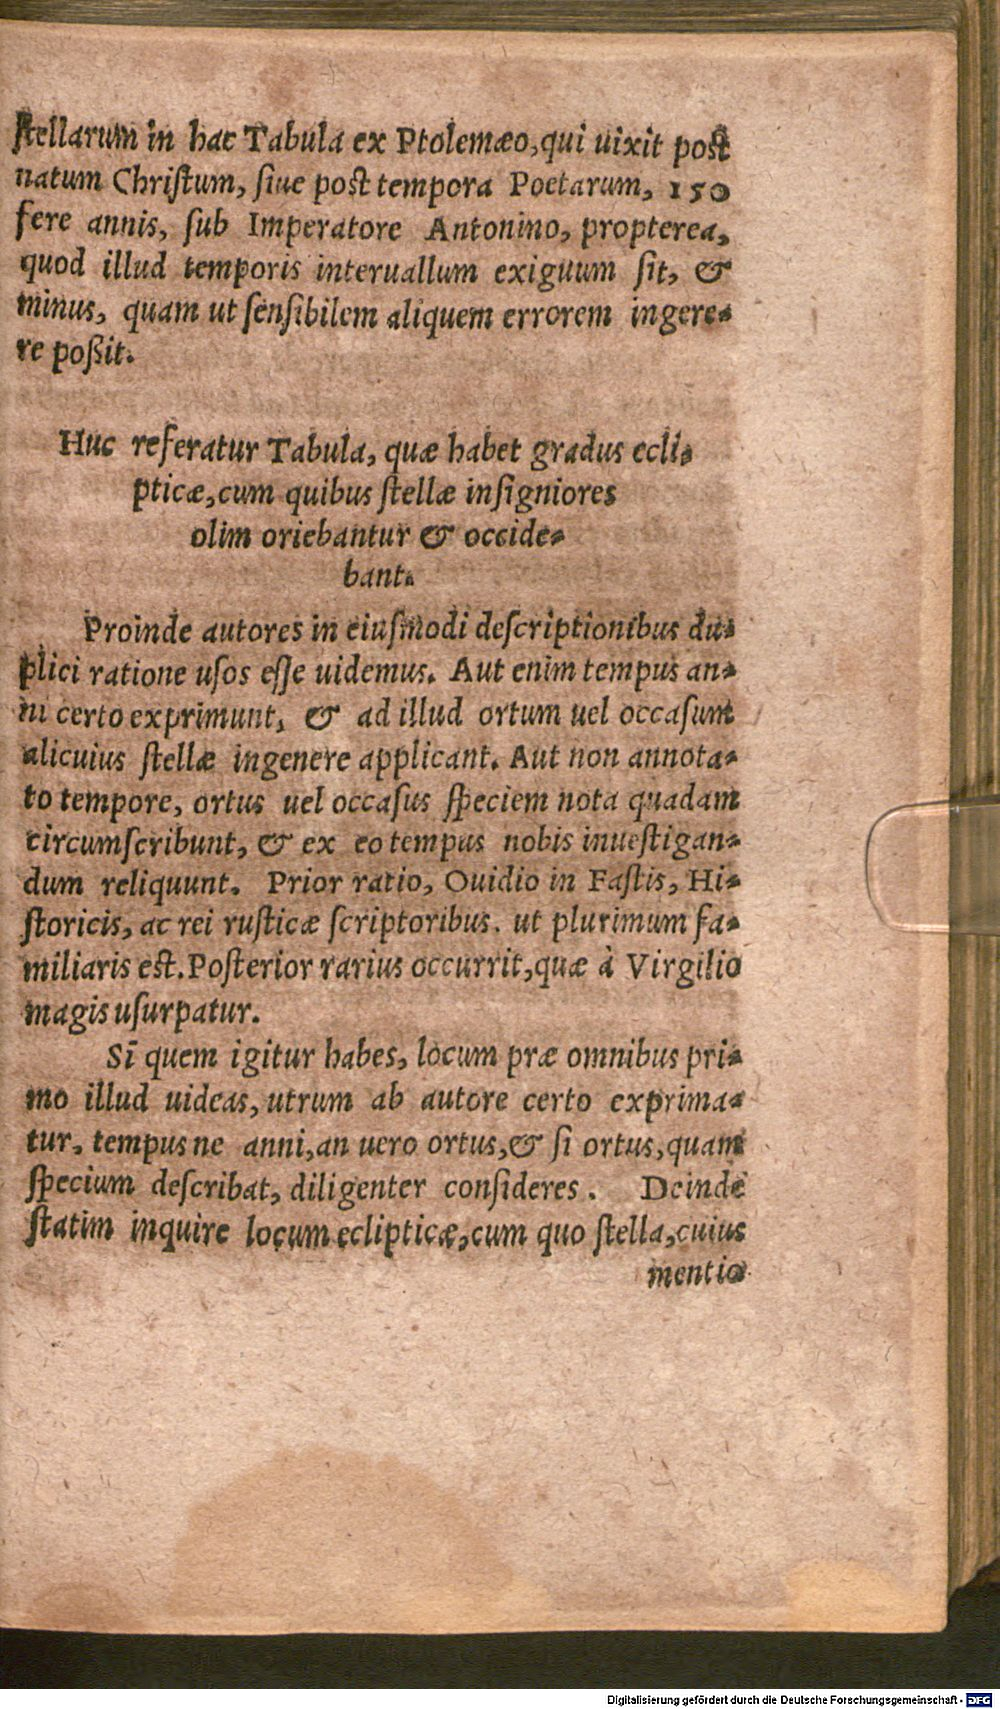 stellarum in hac Tabula ex Ptolemæo, qui uixit post
natum Christum, siue post tempora Poetarum, 150
fere annis, sub Imperatore Antonino, propterea,
quod illud temporis interuallum exiguum sit, &
minus, quam ut sensibilem aliquem errorem ingere-
re poßit.
Huc referatur Tabula, quæ habet gradus ecli-
pticæ, cum quibus stellæ insigniores
olim oriebantur & occide-
bant.
Proinde autores in eiusmodi descriptionibus du-
plici ratione usos esse uidemus. Aut enim tempus an-
ni certo exprimunt, & ad illud ortum uel occasum
alicuius stellæ ingenere applicant. Aut non annota-
to tempore, ortus uel occasus speciem nota quadam
circumscribunt, & ex eo tempus nobis inuestigan-
dum reliquunt. Prior ratio, Ouidio in Fastis, Hi-
storicis, ac rei rusticæ scriptoribus. ut plurimum fa-
miliaris est. Posterior rarius occurrit, quæ à Virgilio
magis usurpatur.
Si quem igitur habes, locum præ omnibus pri-
mo illud uideas, utrum ab autore certo exprima-
tur, tempus ne anni, an uero ortus, & si ortus, quam
specium describat, diligenter consideres. Deinde
statim inquire locum eclipticæ, cum quo stella, cuius
mentio
Digitalisierung gefördert durch die Deutsche Forschungsgemeinschaft - DFG